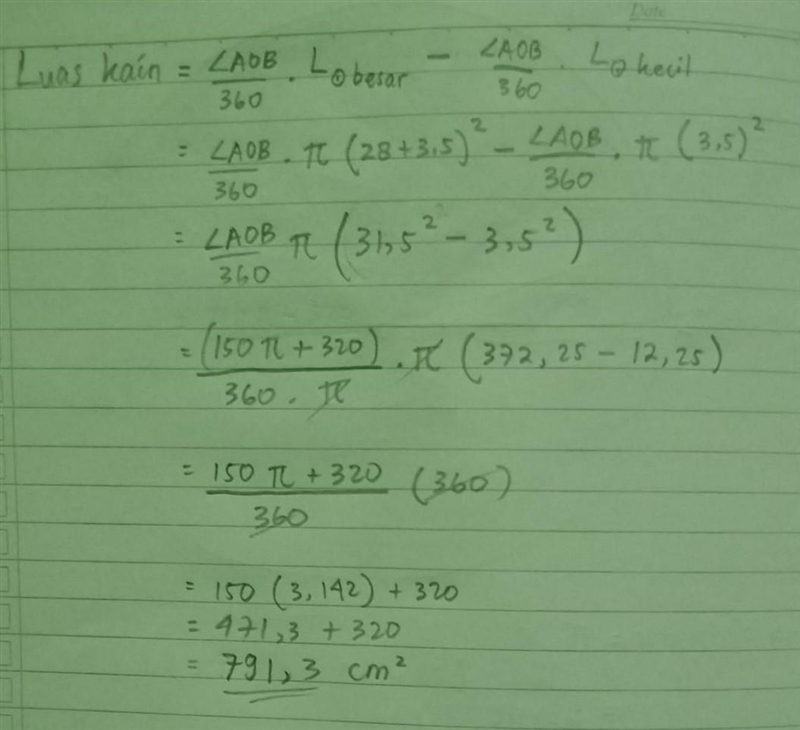 Date
Luas kain = ∠AOB/360 . L⊙ besar − ∠AOB/360 . L⊙ kecil
= ∠AOB/360 . π (28+3,5)² − ∠AOB/360 . π (3,5)²
= ∠AOB/360 π (31,5² − 3,5²)
= (150 π + 320)/360 . π . π (372,25 − 12,25)
= 150 π + 320/360 (360)
= 150 (3,142) + 320
= 471,3 + 320
= 791,3 cm²